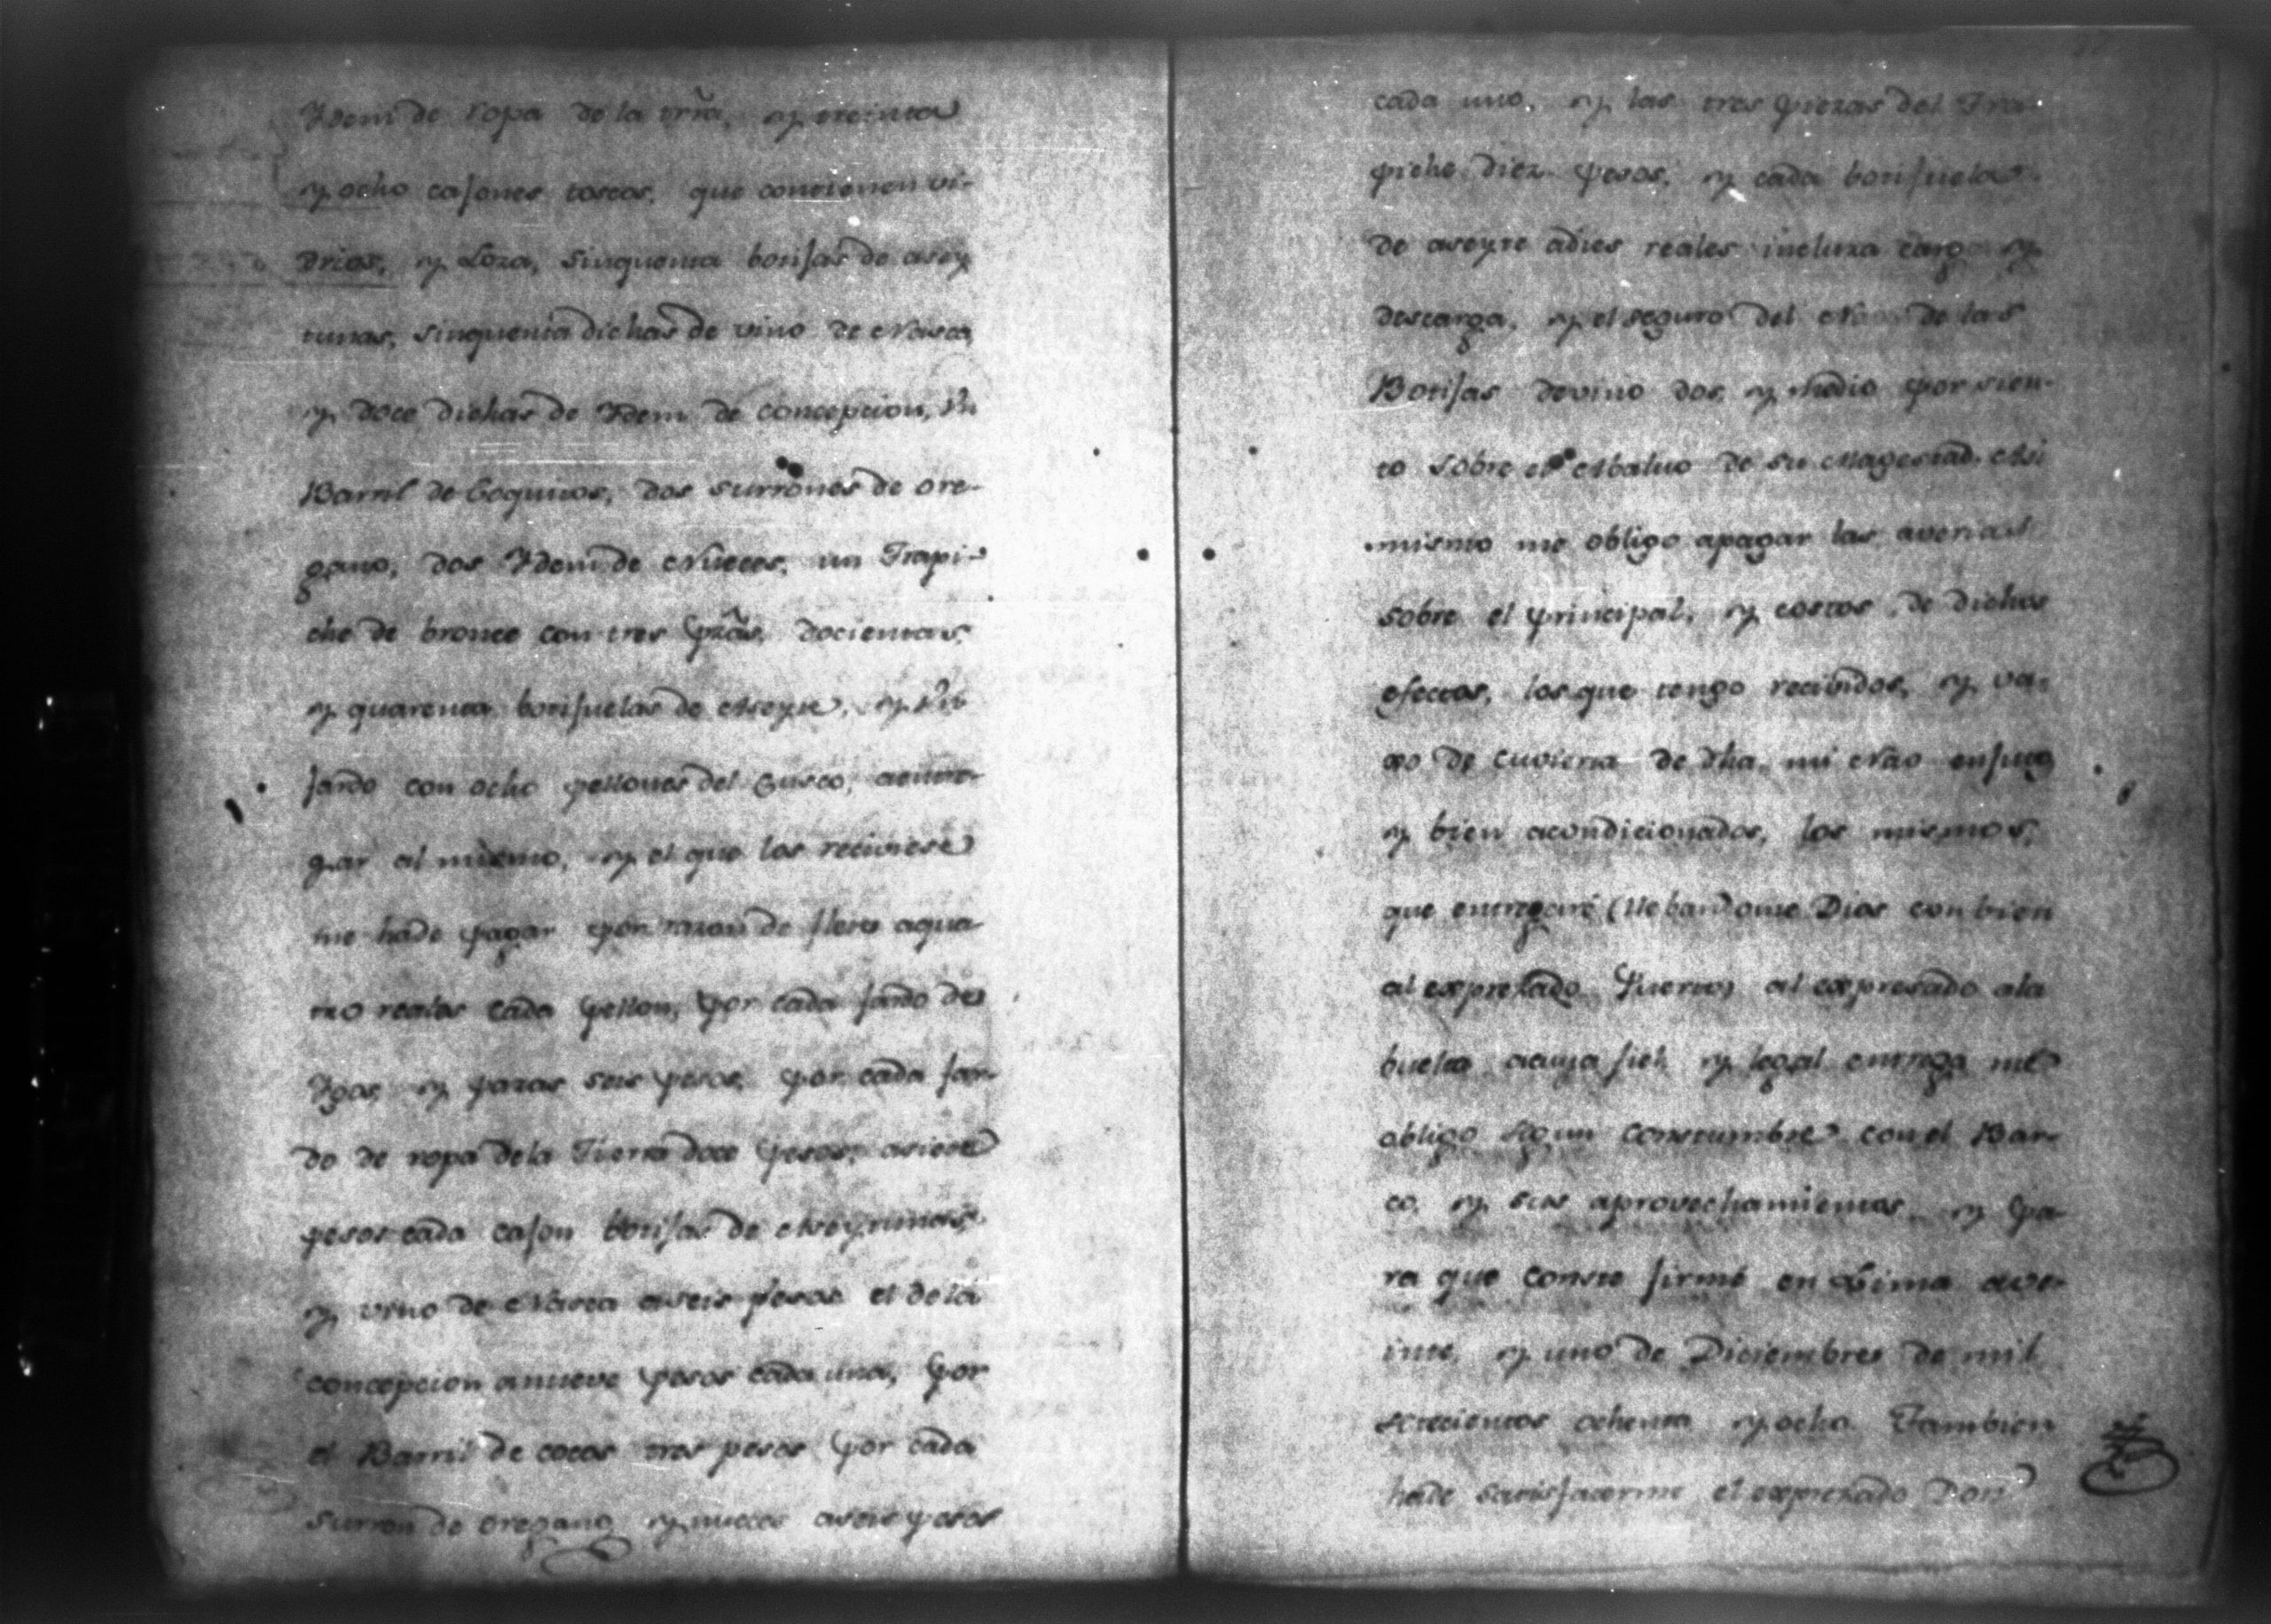 Ydem de ropa de la trrã, y treinta
y ocho casones toscos, que contienen vi-
drios, y Loza, sinquenta botijas de asey
tunas, sinquenta dichas de vino de Nasca,
y doce dichas de Ydem de concepcion, Vn
Barril de Coquitos, dos surrones de ore-
gano, dos Ydem de Nueces, un Trapi-
che de bronce con tres pzãs, docientas,
y quarenta botijuelas de Aseyte, y Vn
fardo con ocho pellones del Cusco, a entre-
gar al mismo, y el que los reciviese
me hade pagar por razon de flete a qua-
tro reales cada pellon, por cada fardo de
Ygos, y pazas seis pesos, por cada far-
do de ropa dela Tierra doce pesos, a siete
pesos cada cason botijas de Aseytunas,
y vino de Nasca a seis pesos el de la
concepcion a nueve pesos cada una, por
el Barril de cocos tres pesos por cada
surron de oregano y nueces a seis pesos
cada uno, y las tres piezas del Tra-
piche diez pesos, y cada botijuela
de aseyte a dies reales incluza carg y
descarga, y el seguro del de las
Botijas de vino dos, y medio por sien-
to sobre el Abaluo de su Magestad. Asi
mismo me obligo apagar las averias
sobre el principal, y costos de dichos
efectos, los que tengo recividos, y va-
xo de cuvierta de dha. mi Nao enjuto
y bien acondicionados, los mismos,
que entregaré (llebandome Dios con bien
al exprezado Puerto) al expresado ala
buelta acuya fiel, y legal entrega me
obligo segun Constumbre con el Bar-
co, y sus aprovechamientos y pa-
ra que conste firmé en Lima a ve-
inte, y uno de Diciembre de mil
setecientos ochenta y ocho. Tambien
hade satisfacerme el exprezado Don